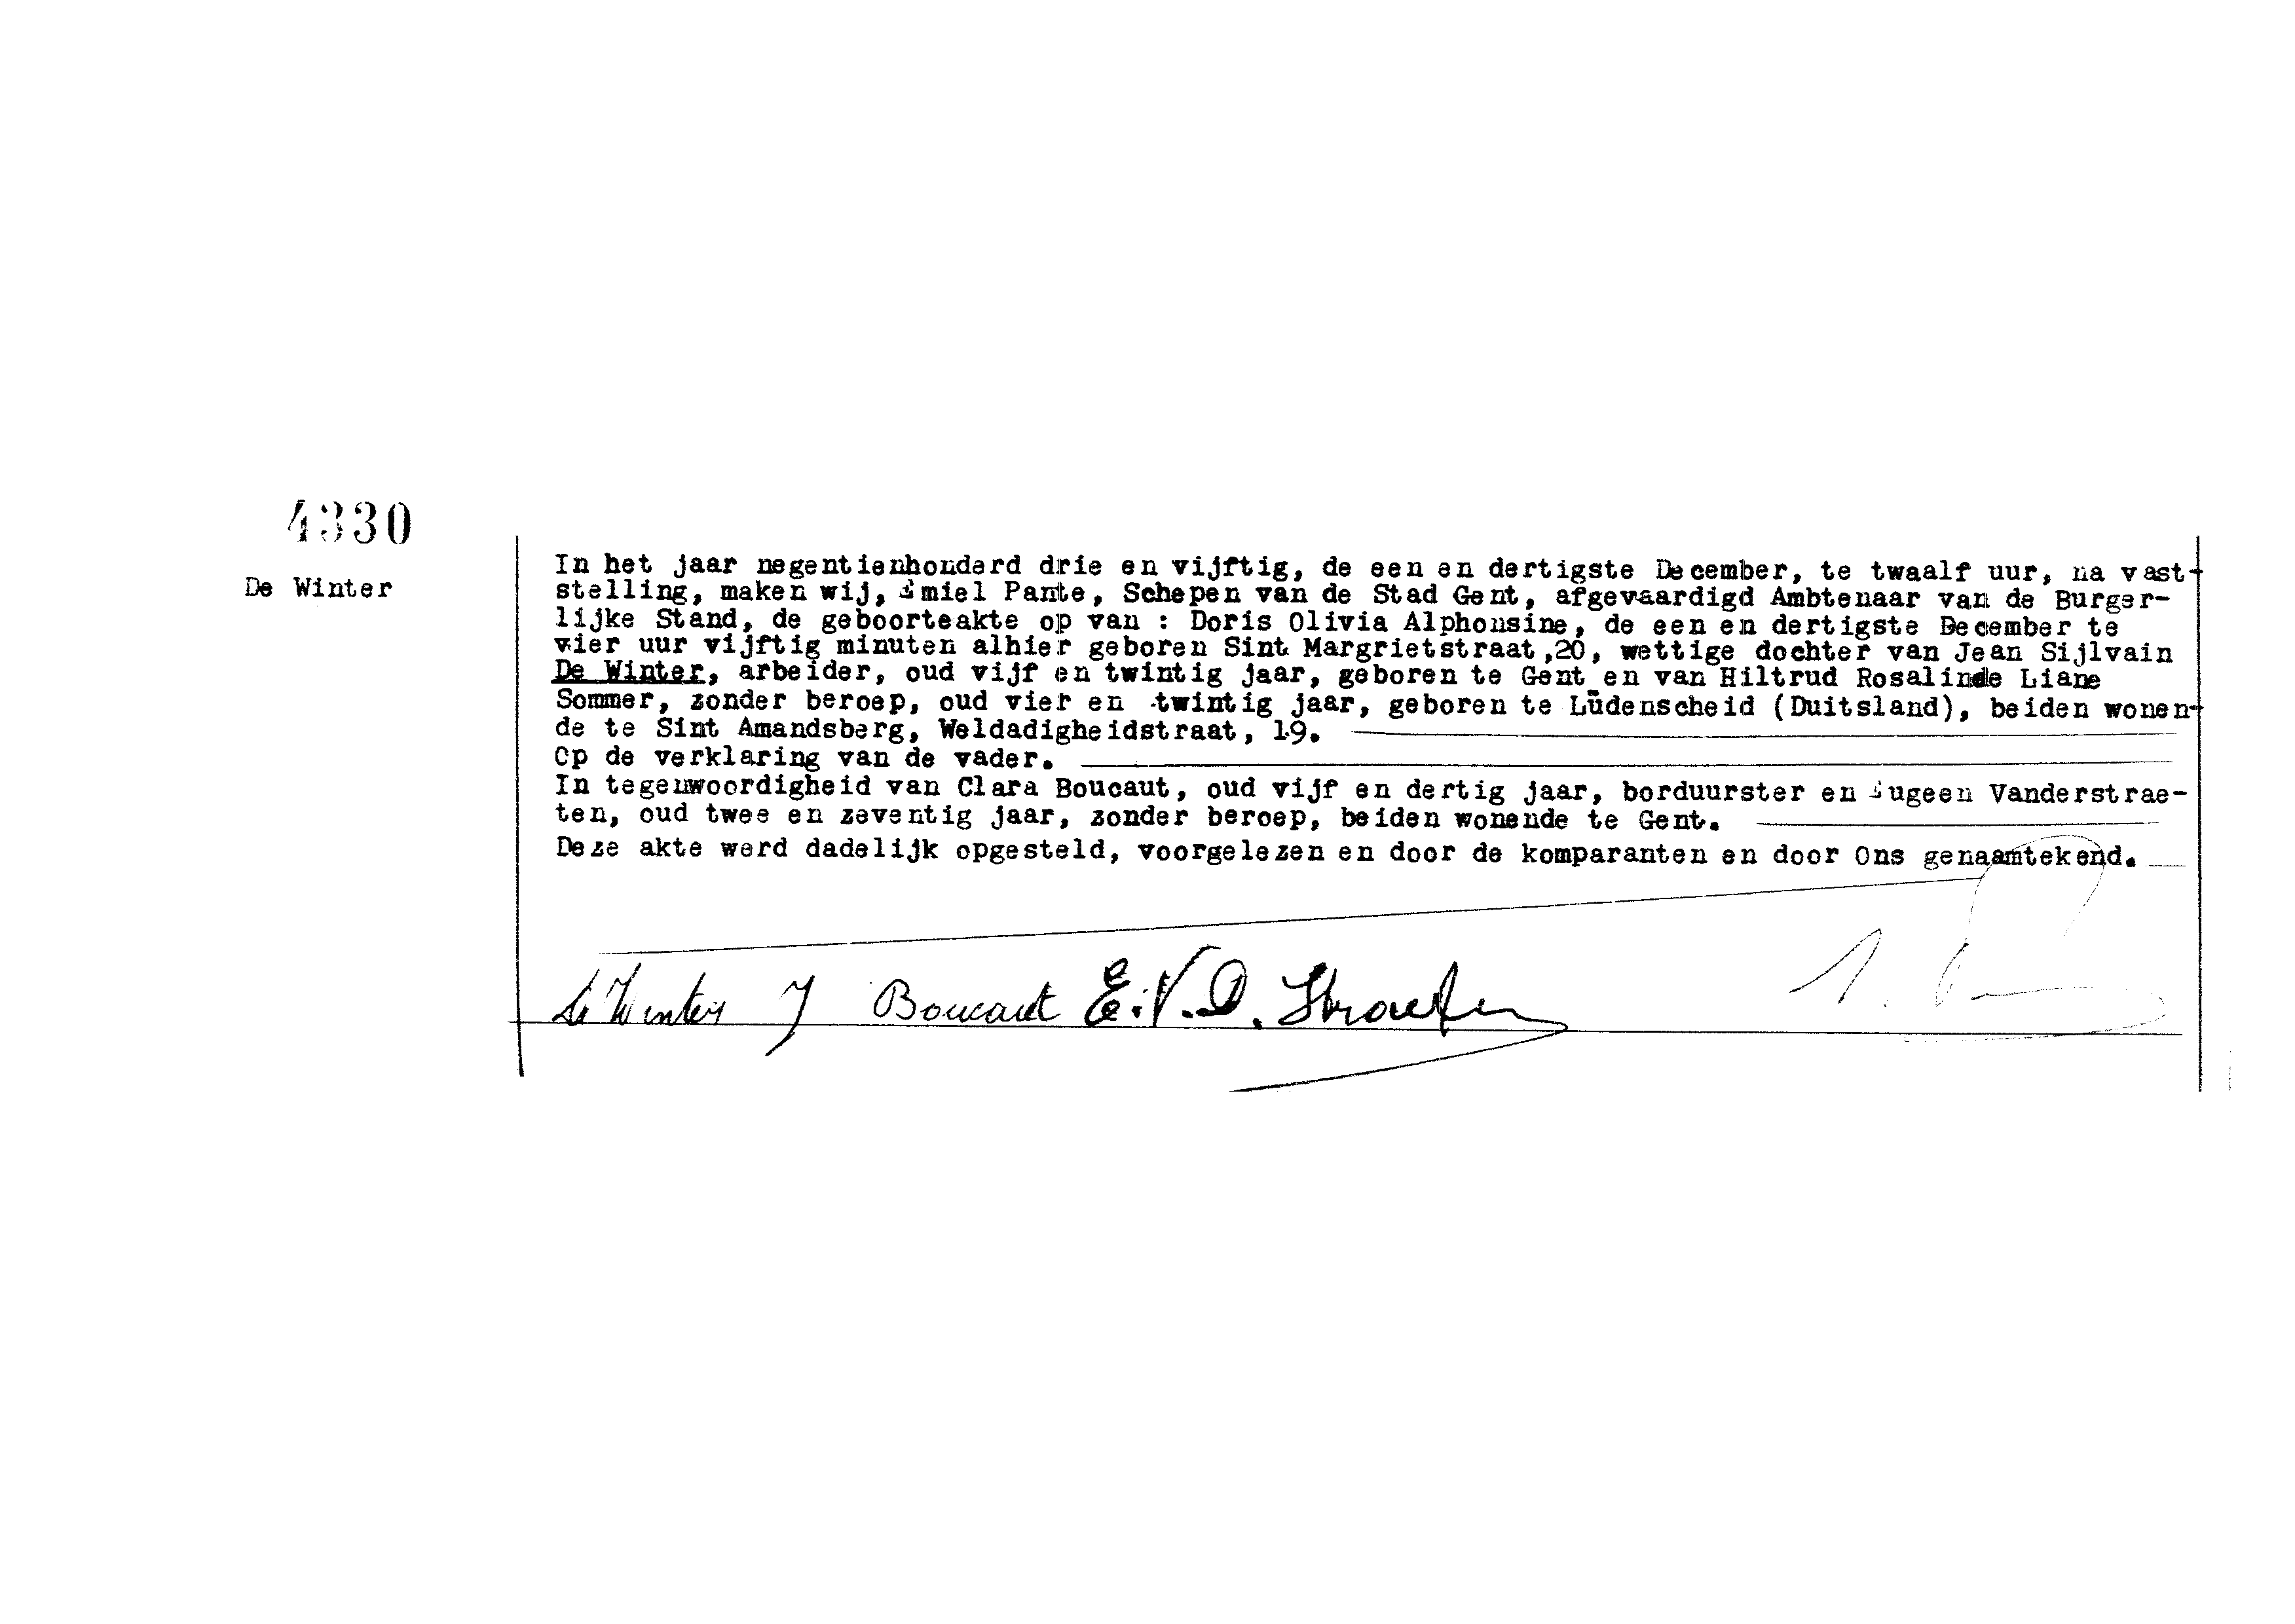 4330
De Winter
In het jaar negentienhonderd drie en vijftig, de een en dertigste December, te twaalf uur, na vast-
stelling, maken wij, Emiel Pante, Schepen van de Stad Gent, afgevaardigd Ambtenaar van de Burger-
lijke Stand, de geboorteakte op van : Doris Olivia Alphonsine, de een en dertigste December te
vier uur vijftig minuten alhier geboren Sint Margrietstraat,20, wettige dochter van Jean Sijlvain
De Winter, arbeider, oud vijf en twintig jaar, geboren te Gent en van Hiltrud Rosalinde Liane
Sommer, zonder beroep, oud vier en twintig jaar, geboren te Lüdenscheid (Duitsland), beiden wonen-
de te Sint Amandsberg, Weldadigheidstraat, 19.
Op de verklaring van de vader.
In tegenwoordigheid van Clara Boucaut, oud vijf en dertig jaar, borduurster en Eugeen Vanderstrae-
ten, oud twee en zeventig jaar, zonder beroep, beiden wonende te Gent.
Deze akte werd dadelijk opgesteld, voorgelezen en door de komparanten en door Ons genaamtekend.
De Winter J Boucaut E.V.D. Straeten